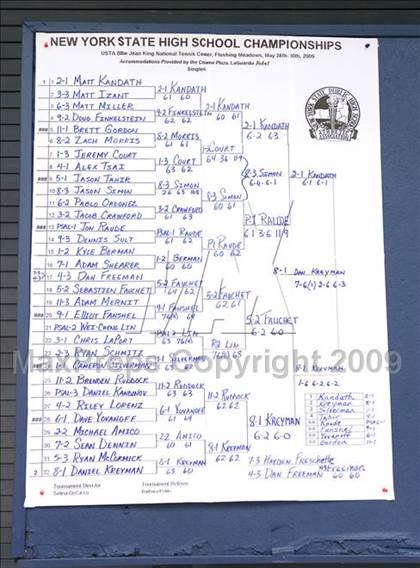 NEW YORK STATE HIGH SCHOOL CHAMPIONSHIPS
USTA Billie Jean King National Tennis Center, Flushing Meadows, May 28th- 30th, 2009
Accommodations Provided by the Crowne Plaza, LaGuardia
Singles
1 1 2-1 MATT KANDATH
2 3-3 MATT IZANT
3 6-3 MATT MILLER
4 9-2 DOUG FINKELSTEIN
5 11-1 BRETT GORDON
6 8-2 ZACH MORRIS
7 1-3 JEREMY COURT
8 4-1 ALEX TSAI
9 5-1 JASON TAHIR
10 8-3 JASON SIMON
11 6-2 PABLO ORDONEZ
12 3-2 JACOB CRAWFORD
13 PSAL-1 JON RAUDE
14 9-3 DENNIS SULT
15 1-2 KYLE BERMAN
16 7-1 ADAM SHEARER
17 4-3 DAN FREEMAN
18 5-2 SEBASTIEN FAUCHET
19 11-3 ADAM MERNIT
20 9-1 ELLIOT FANSHEL
21 PSAL-2 WEI-CHENG LIN
22 3-1 CHRIS LAPORT
23 2-3 RYAN SCHMITZ
24 1-1 CAMERON SILVERMAN
25 11-2 BRENDEN RUDDOCK
26 PSAL-3 DANIEL KANDINOV
27 4-2 RILEY LORENZ
28 6-1 DAVE YOVANOFF
29 2-2 MICHAEL AMICO
30 7-2 SEAN DENNIN
31 5-3 RYAN MCCORMICK
2 32 8-1 DANIEL KREYMAN
2-1 KANDATH
61 60
9-2 FINKELSTEIN
62 62
8-2 MORRIS
61 61
1-3 COURT
63 62
8-3 SIMON
26 63
3-2 CRAWFORD
61 63
PSAL-1 RAUDE
61 62
1-2 BERMAN
60 60
5-2 FAUCHET
64 62
9-1 FANSHEL
PSAL 2 LIN
1-1 SILVERMAN
63 60
11-2 RUDDOCK
63 63
6-1 YOVANOFF
2-2 AMICO
60 61
8-1 KREYMAN
63 60
2-1 KANDATH
60 61
1-3 COURT
64 36
8-3 SIMON
60 61
P1 RAUDE
60 62
5-2 FAUCHET
62 61
P2 LIN
63
11-2 RUDDOCK
62 62
8-1 KREYMAN
62 62
2-1 KANDATH
6-2 63
8-3 SIMON
6-4 6-1
P-1 RAUDE
61 3-6 119
5-2 FAUCHET
6-2 6-0
8-1 KREYMAN
6-2 6-0
2-1 KANDATH
6-1 6-1
8-1 DAN KREYMAN
2-6 6-3
8-1 KREYMAN
1-6 6-2 6-2
1 Kandath 2-1
2 Kreyman 8-1
3 Silverman 1-1
4 Tahir 5-1
5 Raude
6 Fanshel 9-1
7 Yovanoff 6-1
8 Gordon 11-1
7-3 HAYDEN FRESCHETTE
4-3 DAN FREEMAN
4-3 FREEMAN
60 60
Tournament Director
Tournament Referee
MaxPreps Copyright 2009